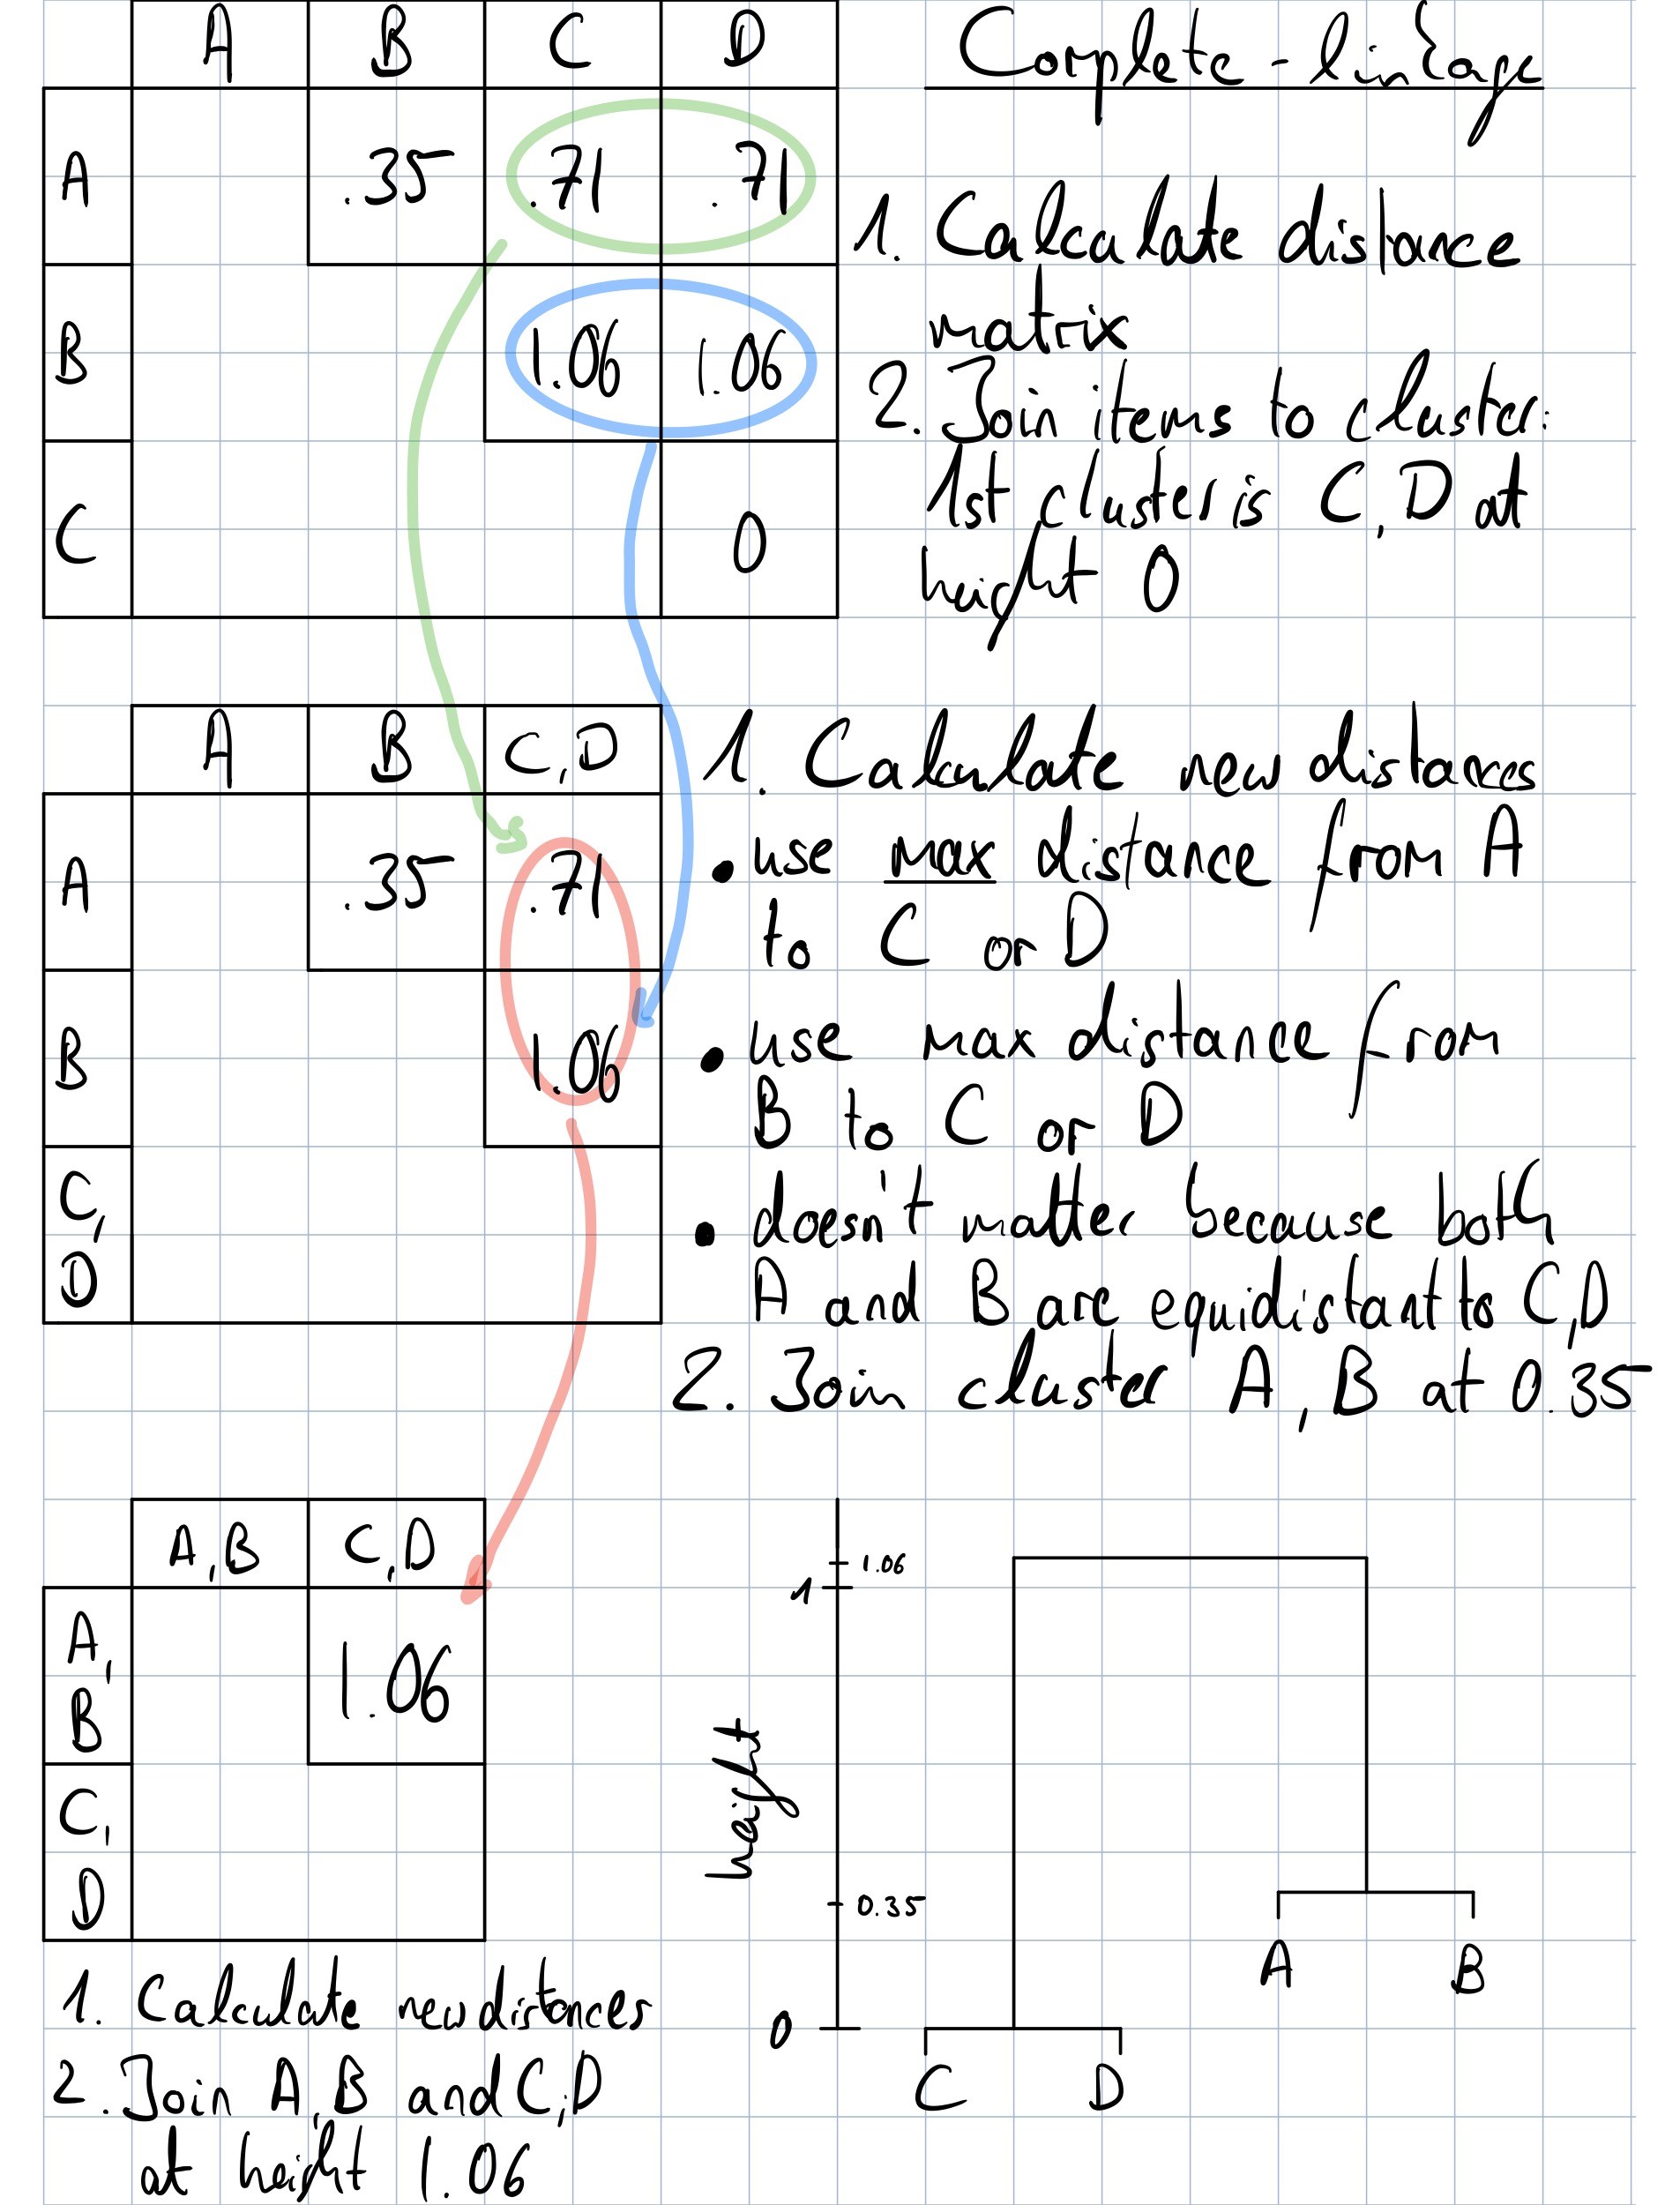 A B C D
A .35 .71 .71
B 1.06 1.06
C 0
Complete-linkage
1. Calculate distance
matrix
2. Join items to cluster:
1st cluster is C,D at
height 0
A B C,D
A .35 .71
B 1.06
C,
D
1. Calculate new distances
• use max distance from A
to C or D
• use max distance from
B to C or D
• doesn't matter because both
A and B are equidistant to C,D
2. Join cluster A,B at 0.35
A,B C,D
A,
B
1.06
C,
D
1. Calculate new distances
2. Join A,B and C,D
at height 1.06
1.06
1
height
0.35
0
A B
C D